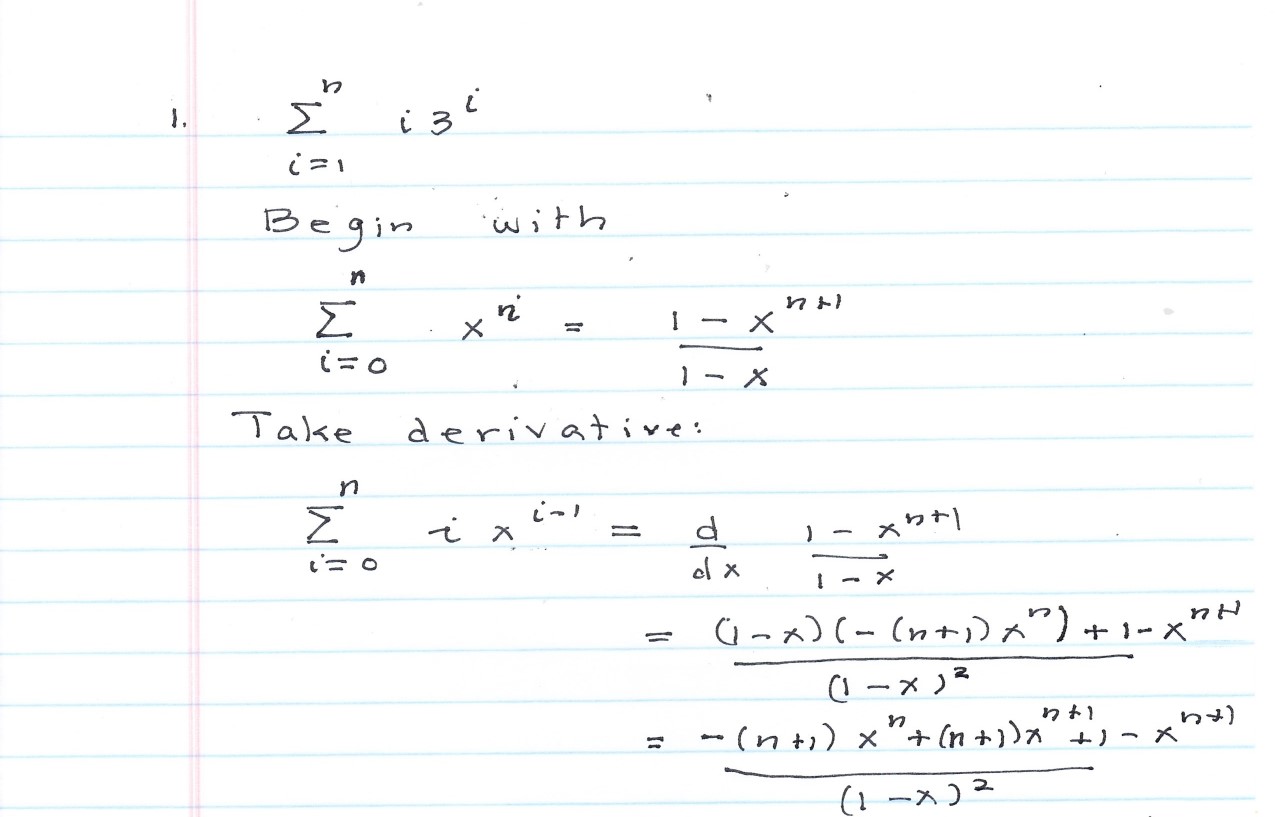 1. \sum_{i=1}^{n} i 3^{i}
Begin with
\sum_{i=0}^{n} x^{i} = \frac{1 - x^{n+1}}{1 - x}
Take derivative:
\sum_{i=0}^{n} i x^{i-1} = \frac{d}{dx} \frac{1 - x^{n+1}}{1 - x}
= \frac{(1-x)(-(n+1)x^{n}) + 1 - x^{n+1}}{(1-x)^{2}}
= \frac{-(n+1)x^{n} + (n+1)x^{n+1} + 1 - x^{n+1}}{(1-x)^{2}}